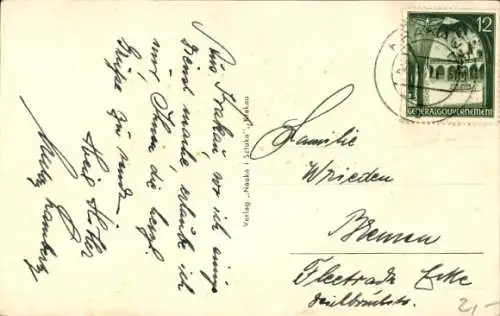 Aus Krakau, wo ich einige
Dienst mache, erlaube ich
mir, Ihnen die besten
Grüße zu senden.
Heil Hitler
Verlag „Nauka i Sztuka“, Krakau
12
GENERALGOUVERNEMENT
Familie
Wrieden
Bremen
Ecke
2,-